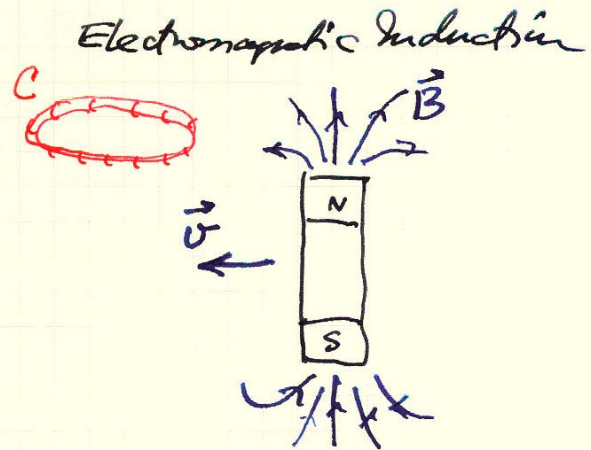 Electromagnetic Induction
C
B
N
v
S